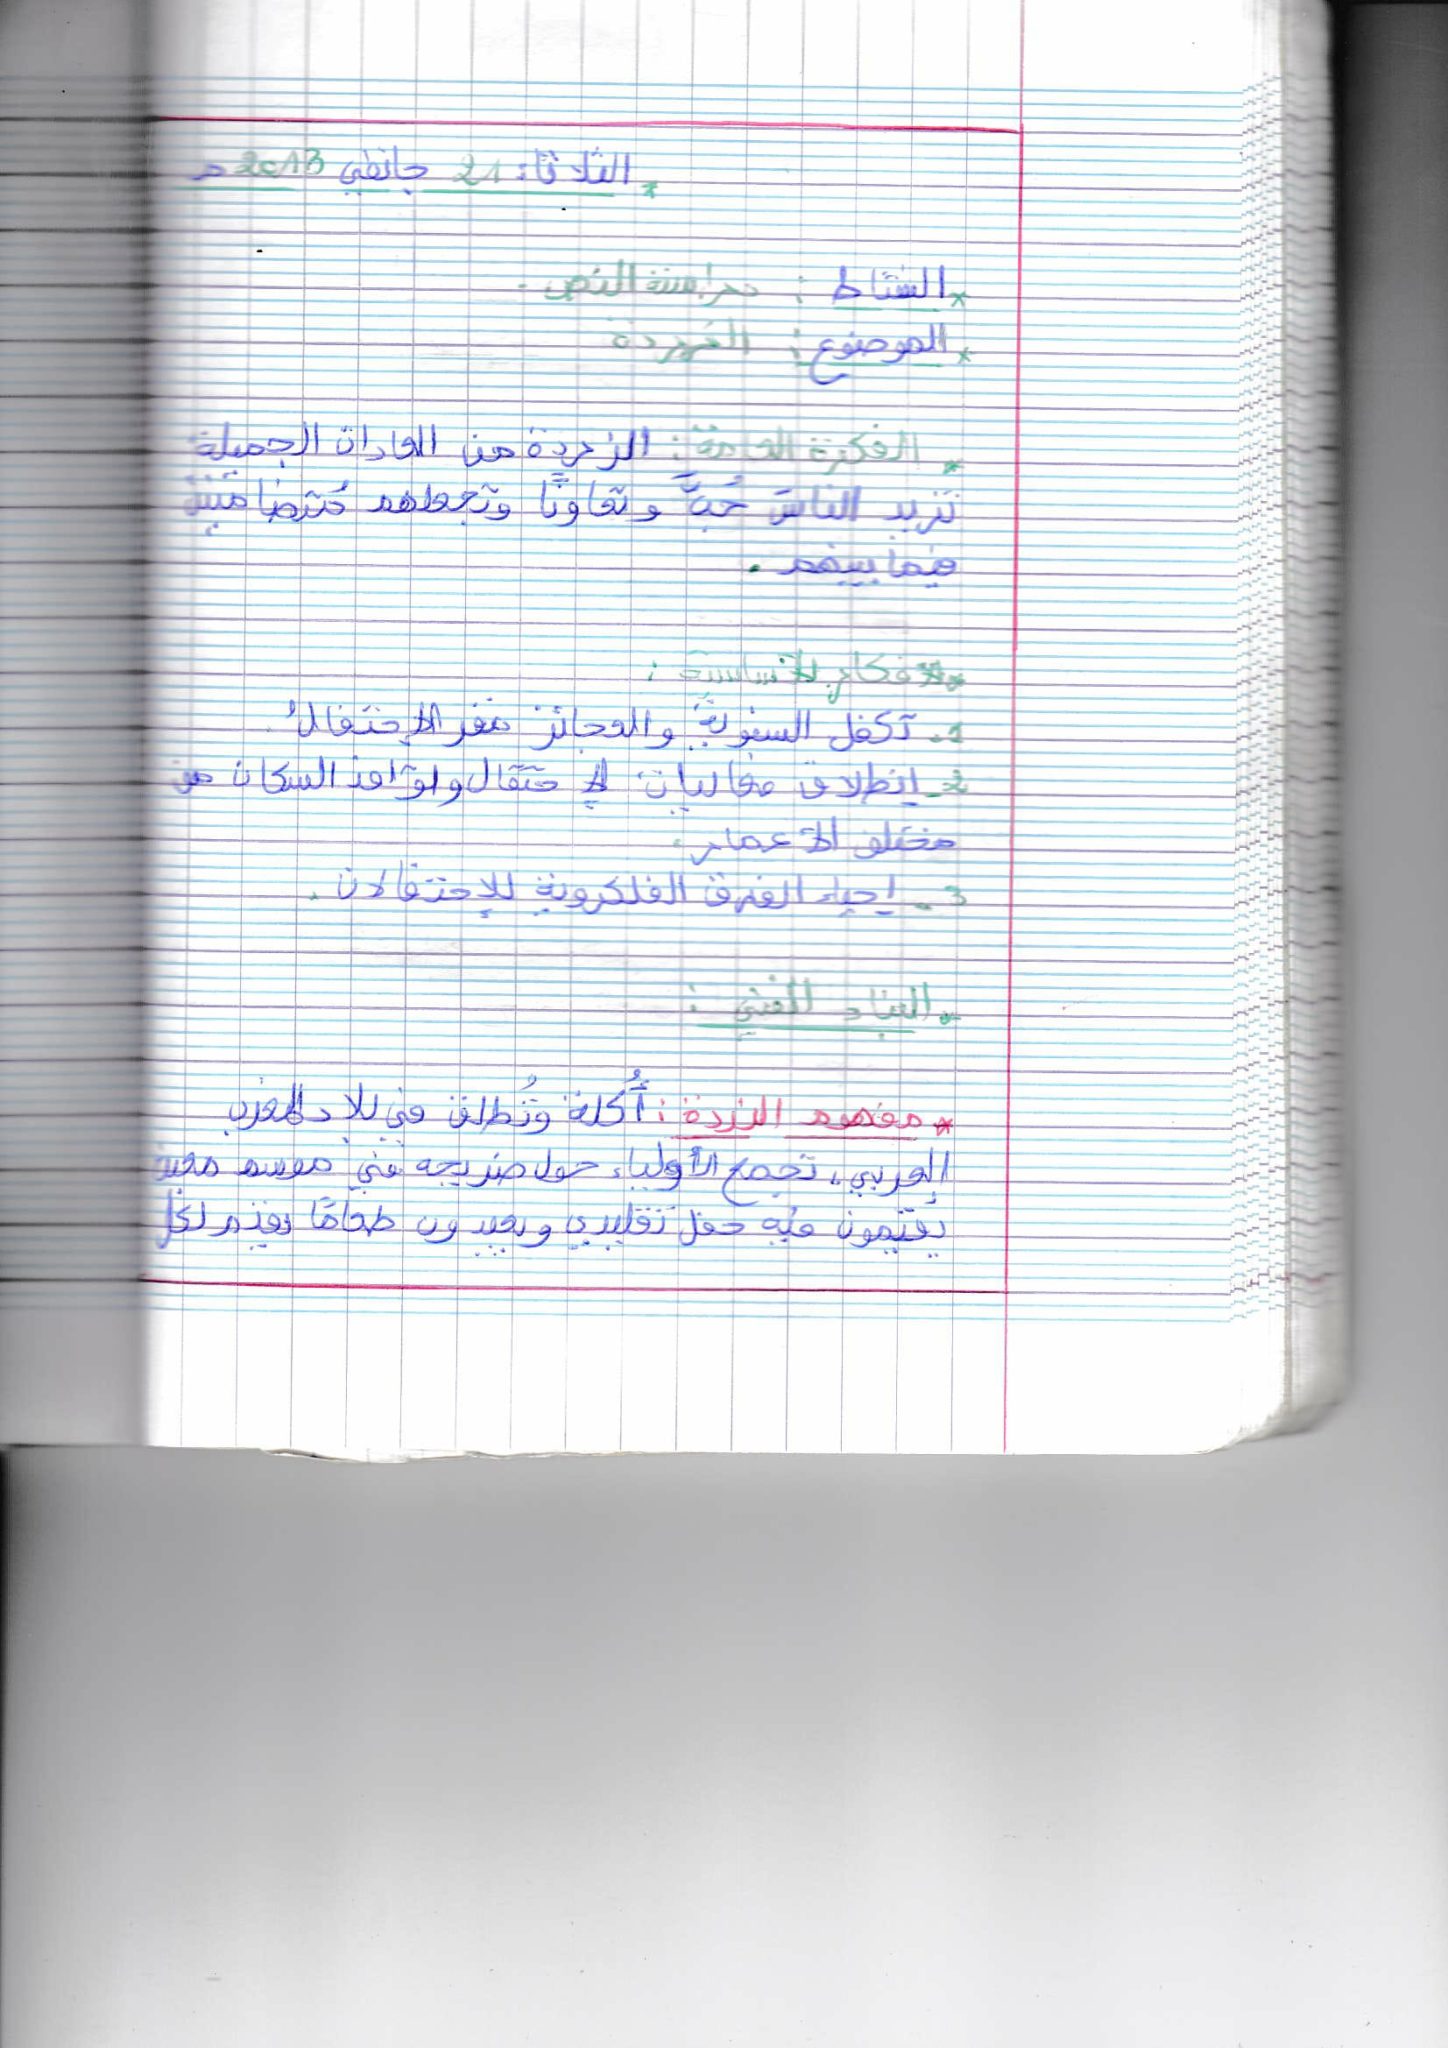 * الثلاثاء 21 جانفي 2013 م
* النشاط : دراسة النص .
* الموضوع : الزردة
* الفكرة العامة : الزردة من العادات الجميلة
تزيد الناسَ حُبًّا وتعاونًا وتجعلهم مُتضامنين
فيما بينهم .
* الأفكار الأساسية :
1 - تكفل والعجائز الإحتفال
2 - إنطلاق فعاليات الإحتفال وتوافد السكان من
مختلف الأعمار .
3 - إحياء الفرق الفلكرونية للإحتفالات .
* البناء الفني :
* مفهوم الزردة : أُكلة وتُطلق في بلاد المغرب
العربي ، تجمع الأولياء حول ضريحه في موسم معين
يُقيمون فيه حفل تقليدي ويعيدون طعامًا يقدم لكل